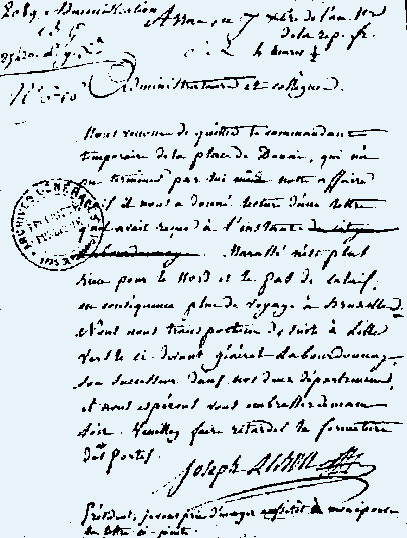 2089. Administration
Arras, ce 7 xbre de l'an 1er
de la rep. fr.
à 2 heures ½
Administrateurs et collègues.
Nous venons de quitter le commandant
temporaire de la place de Douai, qui n'a
pu terminer par lui notre affaire
mais il nous a donné lecture d'une lettre
qu'il avait reçue à l'instant
Labourdonnay. n'est plus
rien pour le Nord et le pas de calais,
en conséquence plus de voyage à Bruxelles.
Nous nous transportons de suite à Lille
vers le ci-devant général Labourdonnay,
son successeur dans nos deux départements,
et nous espérons vous embrasser demain
soir. Veuillez faire retarder la fermeture
des portes.
Joseph
Président, je vous prie d'envoyer aussitôt à
la lettre ci-jointe.
ARCHIVES GENERALES